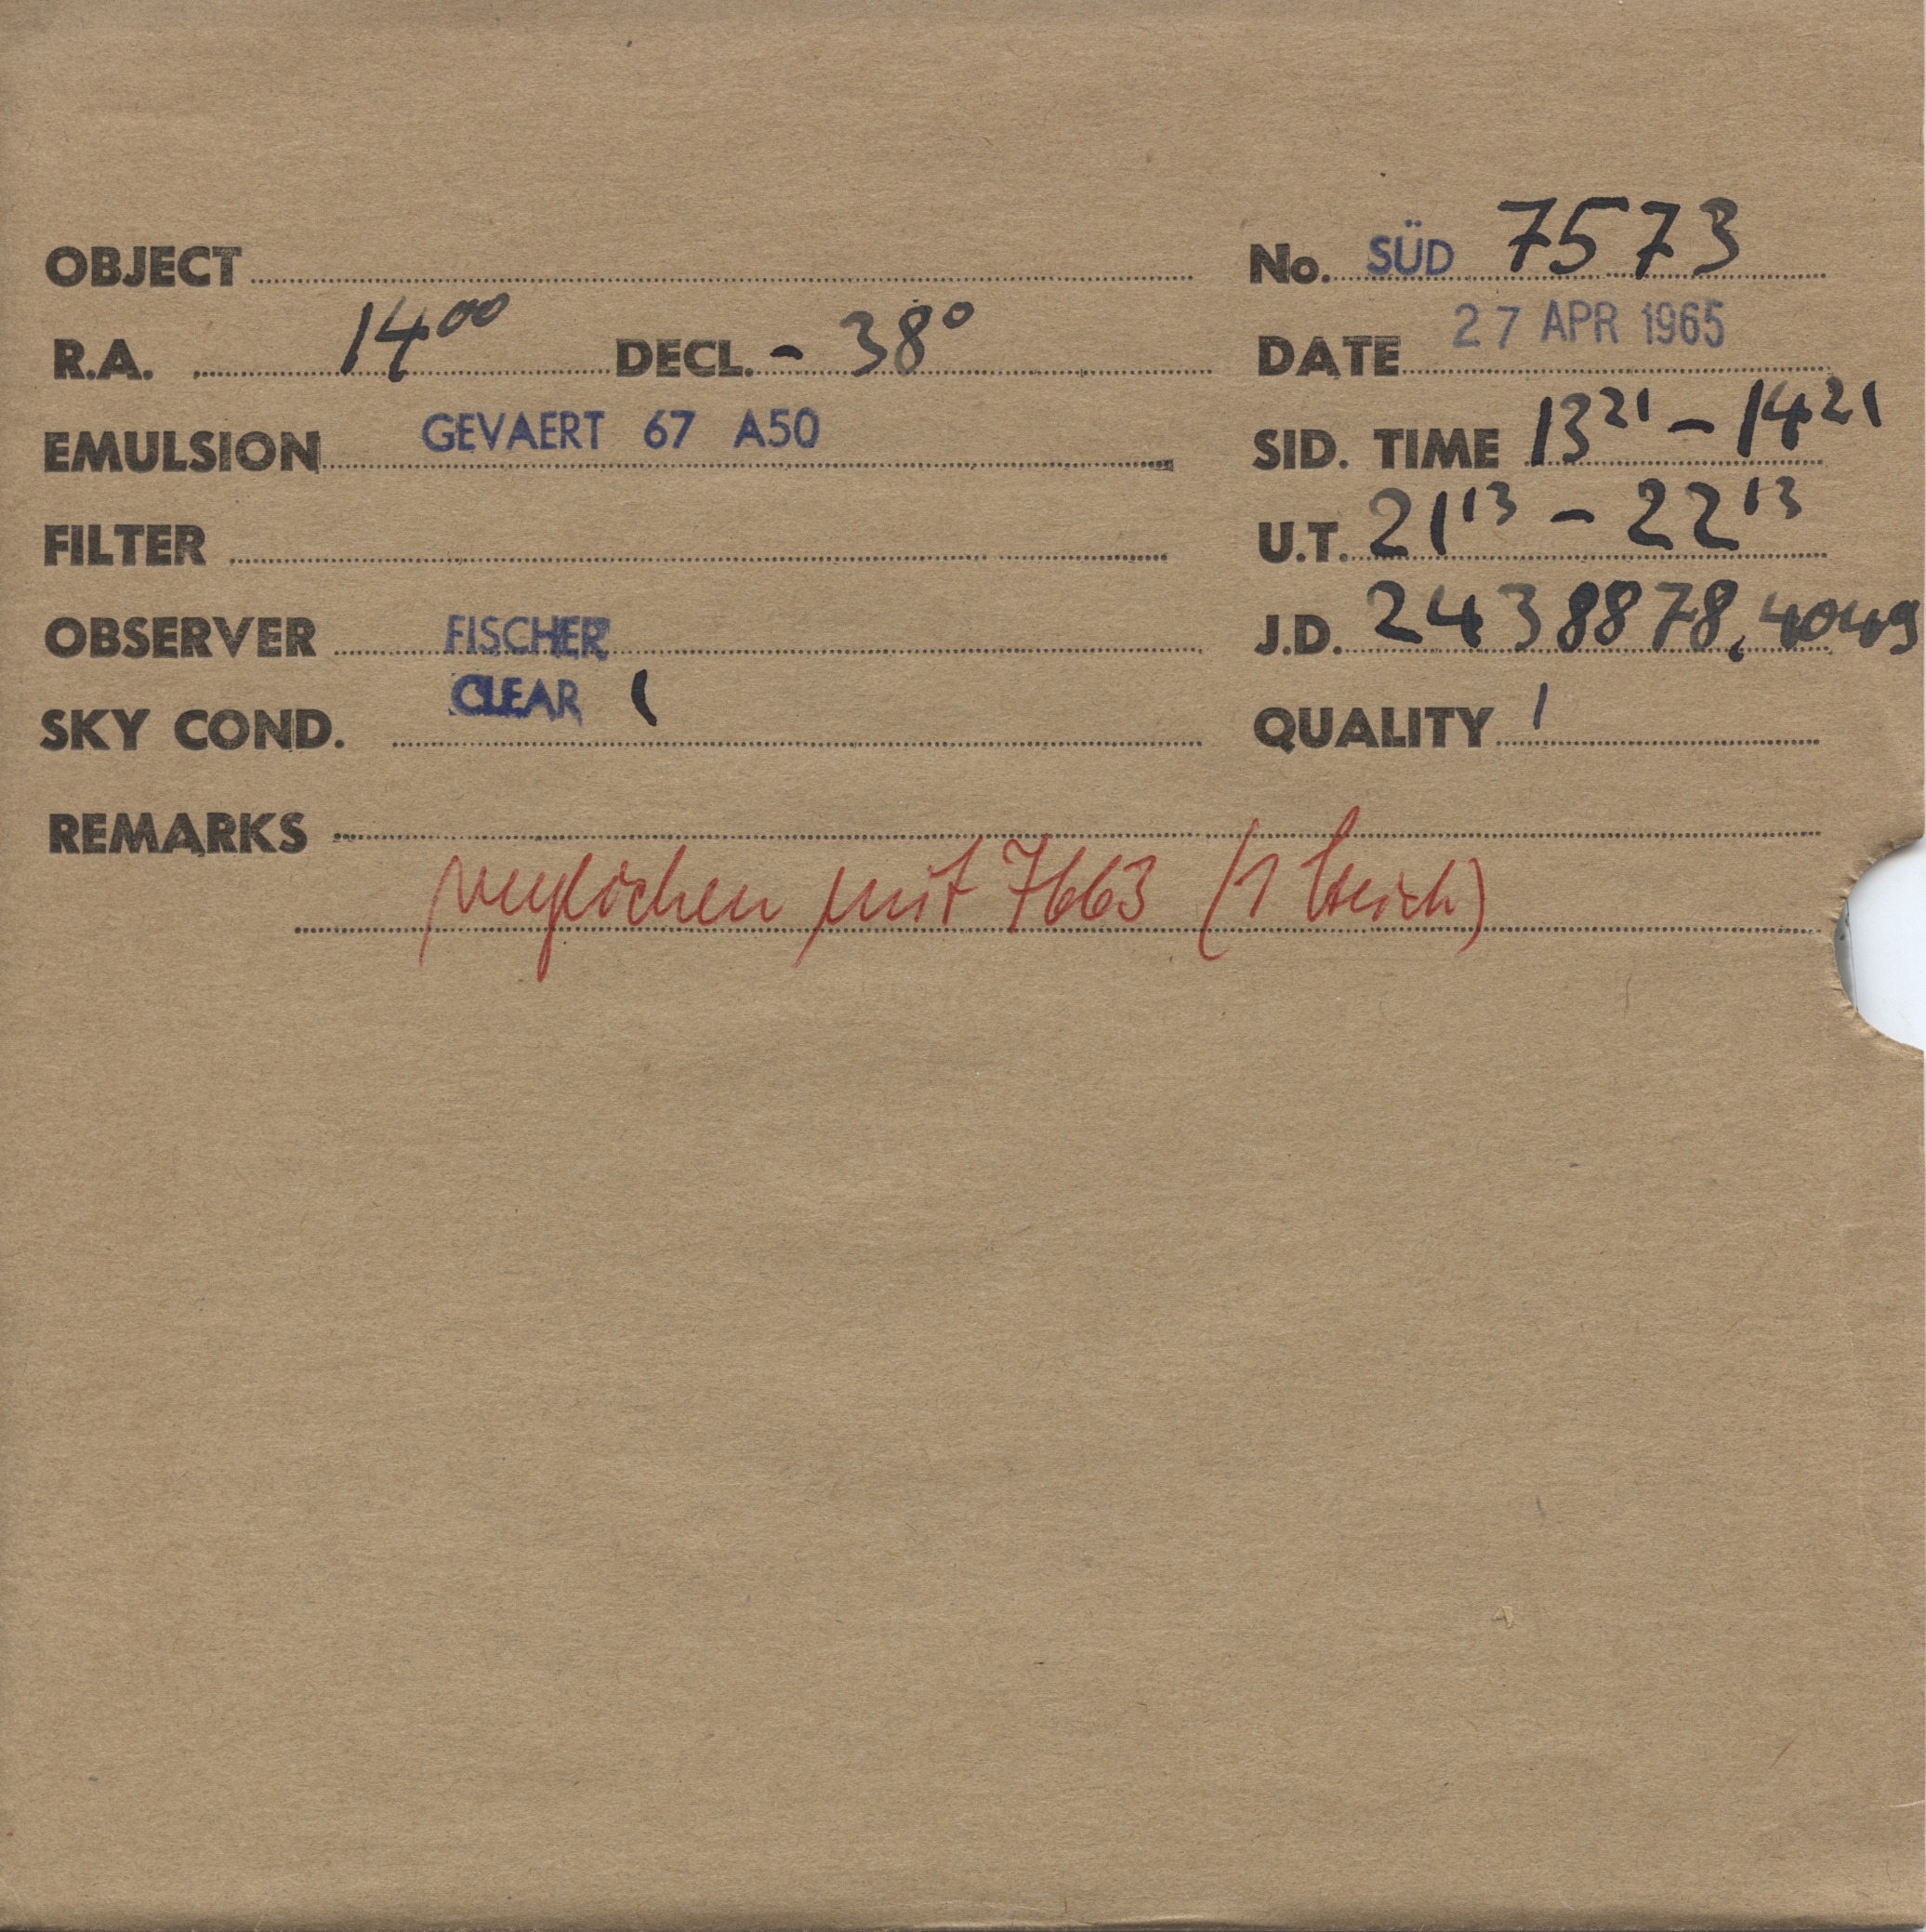 OBJECT
No. SÜD 7573
R.A. 14 00 DECL. - 38°
DATE 27 APR 1965
EMULSION GEVAERT 67 A50
SID. TIME 13 21 - 14 21
FILTER
U.T. 21 13 - 22 13
OBSERVER FISCHER
J.D. 2438878,4049
SKY COND. CLEAR (
QUALITY 1
REMARKS
verglichen mit 7663 (1 Strich)